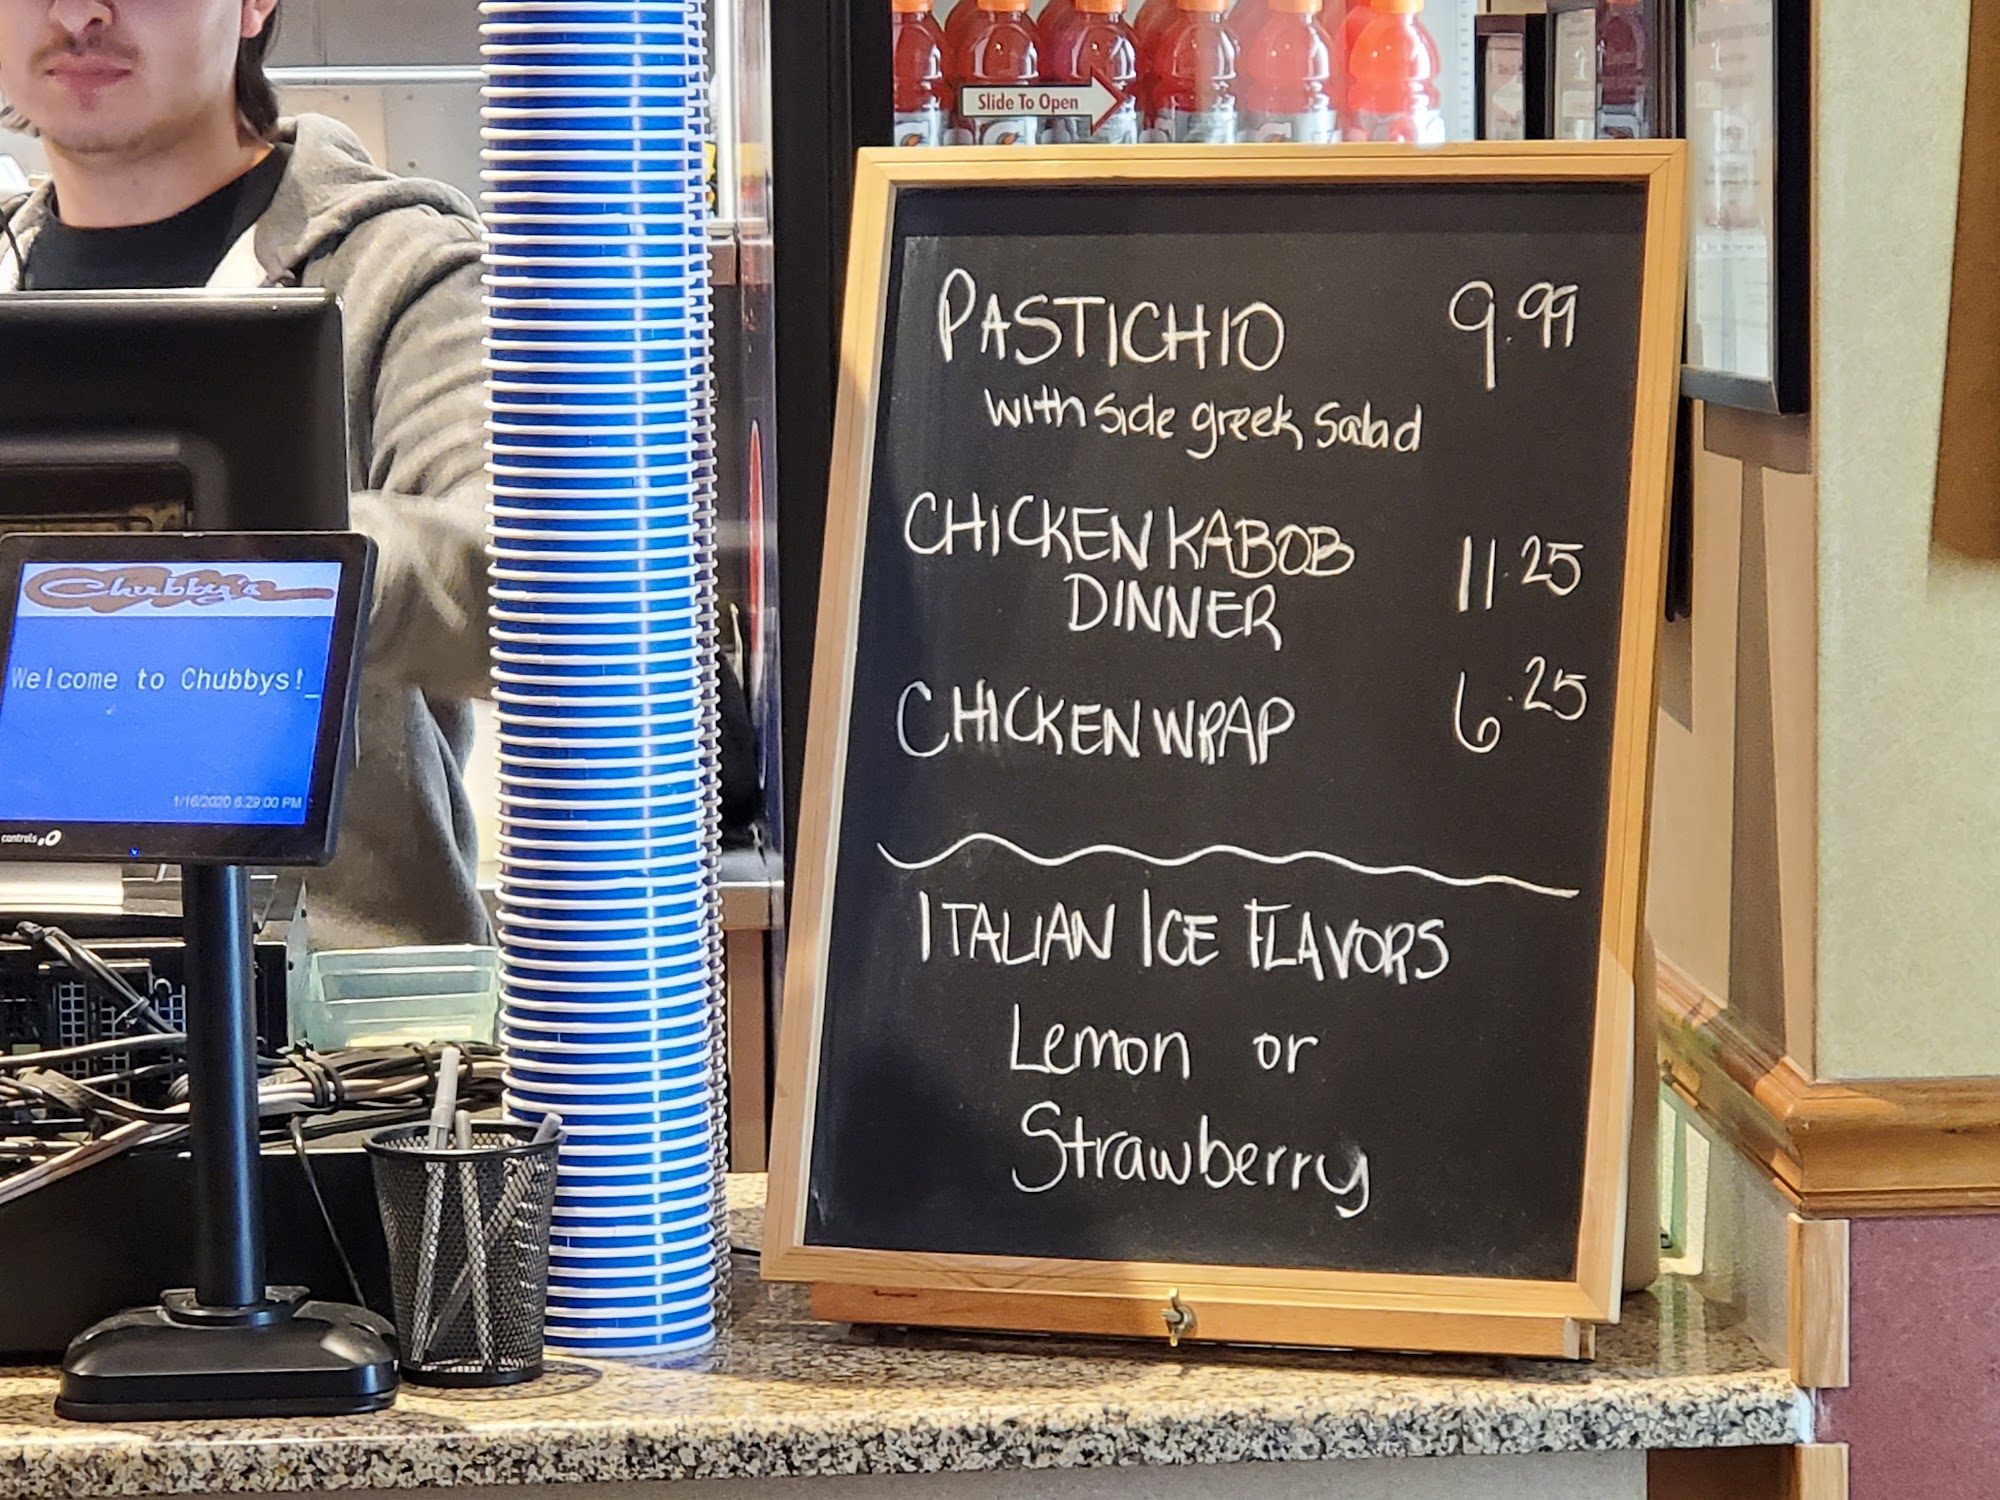 Slide To Open
PASTICHIO 9.99
with side greek salad
CHICKEN KABOB
DINNER 11.25
CHICKEN WRAP 6.25
ITALIAN ICE FLAVORS
Lemon or
Strawberry
Chubby's
Welcome to Chubbys!_
1/16/2020 6:29:00 PM
controls